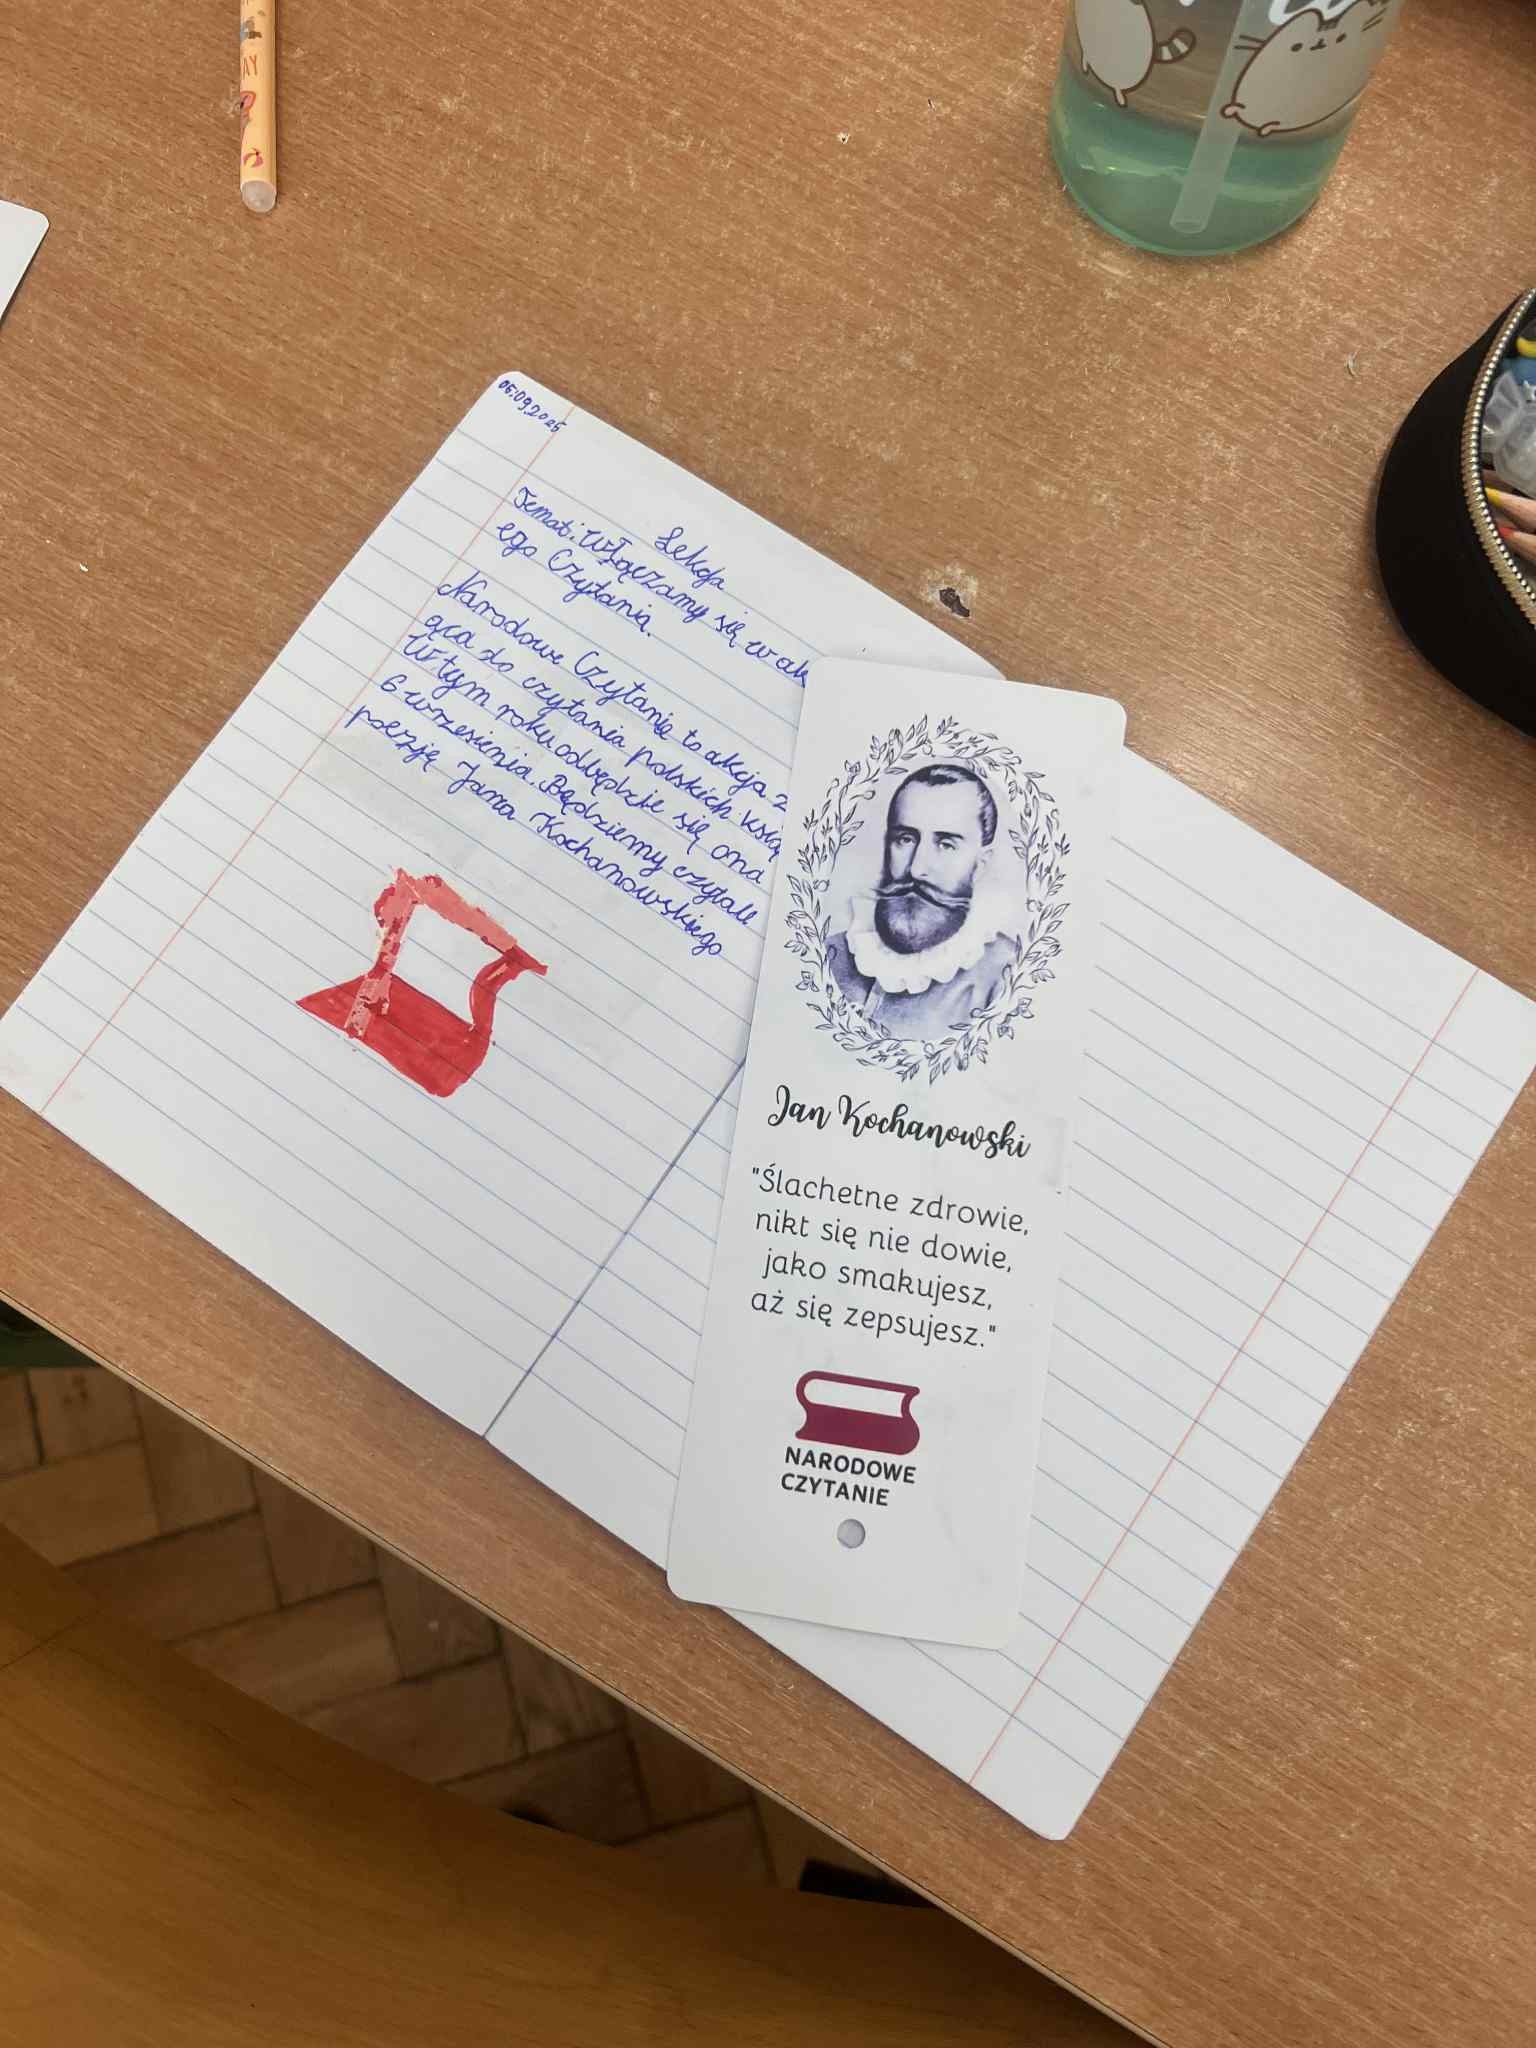 05.09.2025
Lekcja
Temat: Włączamy się w ak
ego Czytania.
Narodowe Czytanie to akcja z
ąca do czytania polskich ksią
W tym roku odbędzie się ona
6 września. Będziemy czytali
poezję Jana Kochanowskiego
Jan Kochanowski
"Ślachetne zdrowie,
nikt się nie dowie,
jako smakujesz,
aż się zepsujesz."
NARODOWE
CZYTANIE